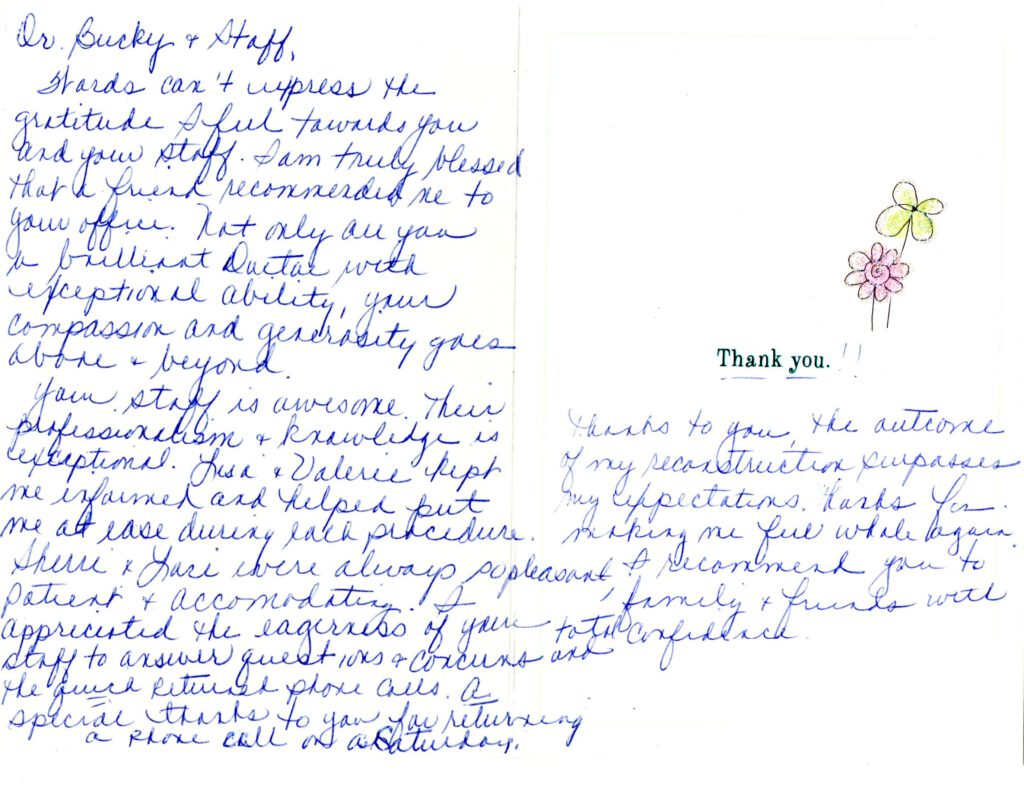 Dr. Bucky & Staff,
Words can't express the
gratitude I feel towards you
and your staff. I am truly blessed
that a friend recommended me to
your office. Not only are you
a brilliant Doctor, with
exceptional ability, your
compassion and generosity goes
above & beyond.
Your staff is awesome. Their
professionalism & knowledge is
exceptional. Lisa & Valerie kept
me informed and helped put
me at ease during each procedure.
Sherri & Lori were always so pleasant,
patient & accomodating. I
appreciated the eagerness of your
staff to answer questions & concerns and
the quick returned phone calls. A
special thanks to you for returning
a phone call on a Saturday.
Thank you.!!
Thanks to you, the outcome
of my reconstruction surpasses
my expectations. Thanks for
making me feel whole again.
I recommend you to
family & friends with
total confidence.